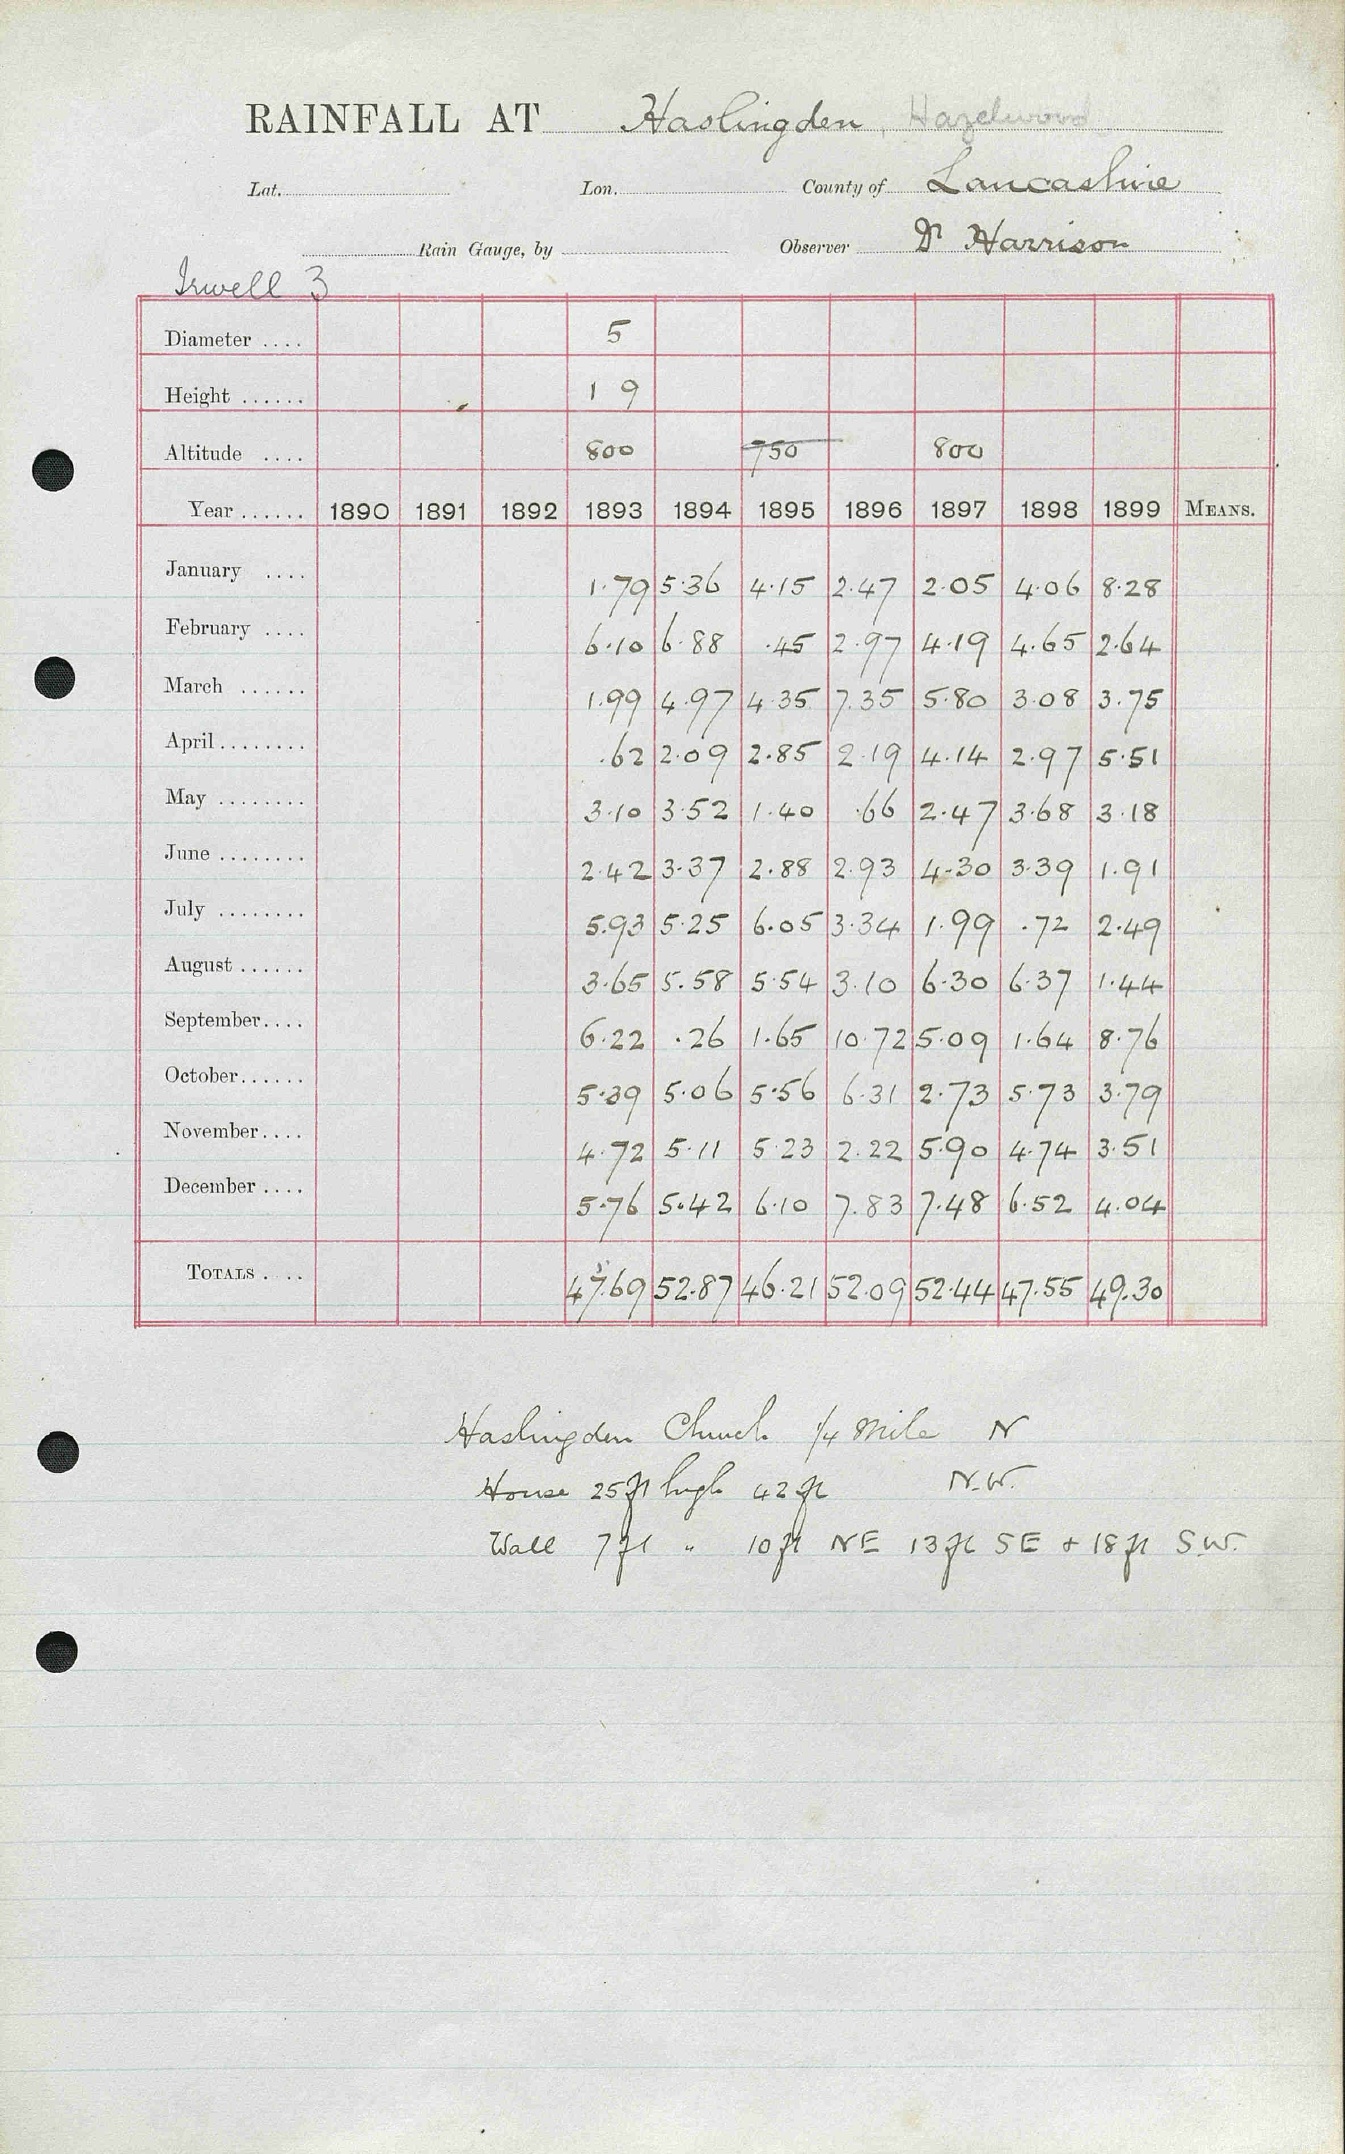 RAINFALL AT Haslingden, Hazelwood
Lat. Lon. County of Lancashire
Rain Gauge, by Observer Dr Harrison
Irwell 3
Diameter .... 5
Height ...... 1 9
Altitude .... 800 750 800
Year ...... 1890 1891 1892 1893 1894 1895 1896 1897 1898 1899 MEANS.
January .... 1.79 5.36 4.15 2.47 2.05 4.06 8.28
February .... 6.10 6.88 .45 2.97 4.19 4.65 2.64
March ...... 1.99 4.97 4.35 7.35 5.80 3.08 3.75
April ........ .62 2.09 2.85 2.19 4.14 2.97 5.51
May ........ 3.10 3.52 1.40 .66 2.47 3.68 3.18
June ........ 2.42 3.37 2.88 2.93 4.30 3.39 1.91
July ........ 5.93 5.25 6.05 3.34 1.99 .72 2.49
August ...... 3.65 5.58 5.54 3.10 6.30 6.37 1.44
September .... 6.22 .26 1.65 10.72 5.09 1.64 8.76
October ...... 5.39 5.06 5.56 6.31 2.73 5.73 3.79
November .... 4.72 5.11 5.23 2.22 5.90 4.74 3.51
December .... 5.76 5.42 6.10 7.83 7.48 6.52 4.04
TOTALS .... 47.69 52.87 46.21 52.09 52.44 47.55 49.30
Haslingden Church 1/4 Mile N
House 25 ft high 42 ft N.W.
Wall 7 ft " 10 ft NE 13 ft SE + 18 ft S.W.